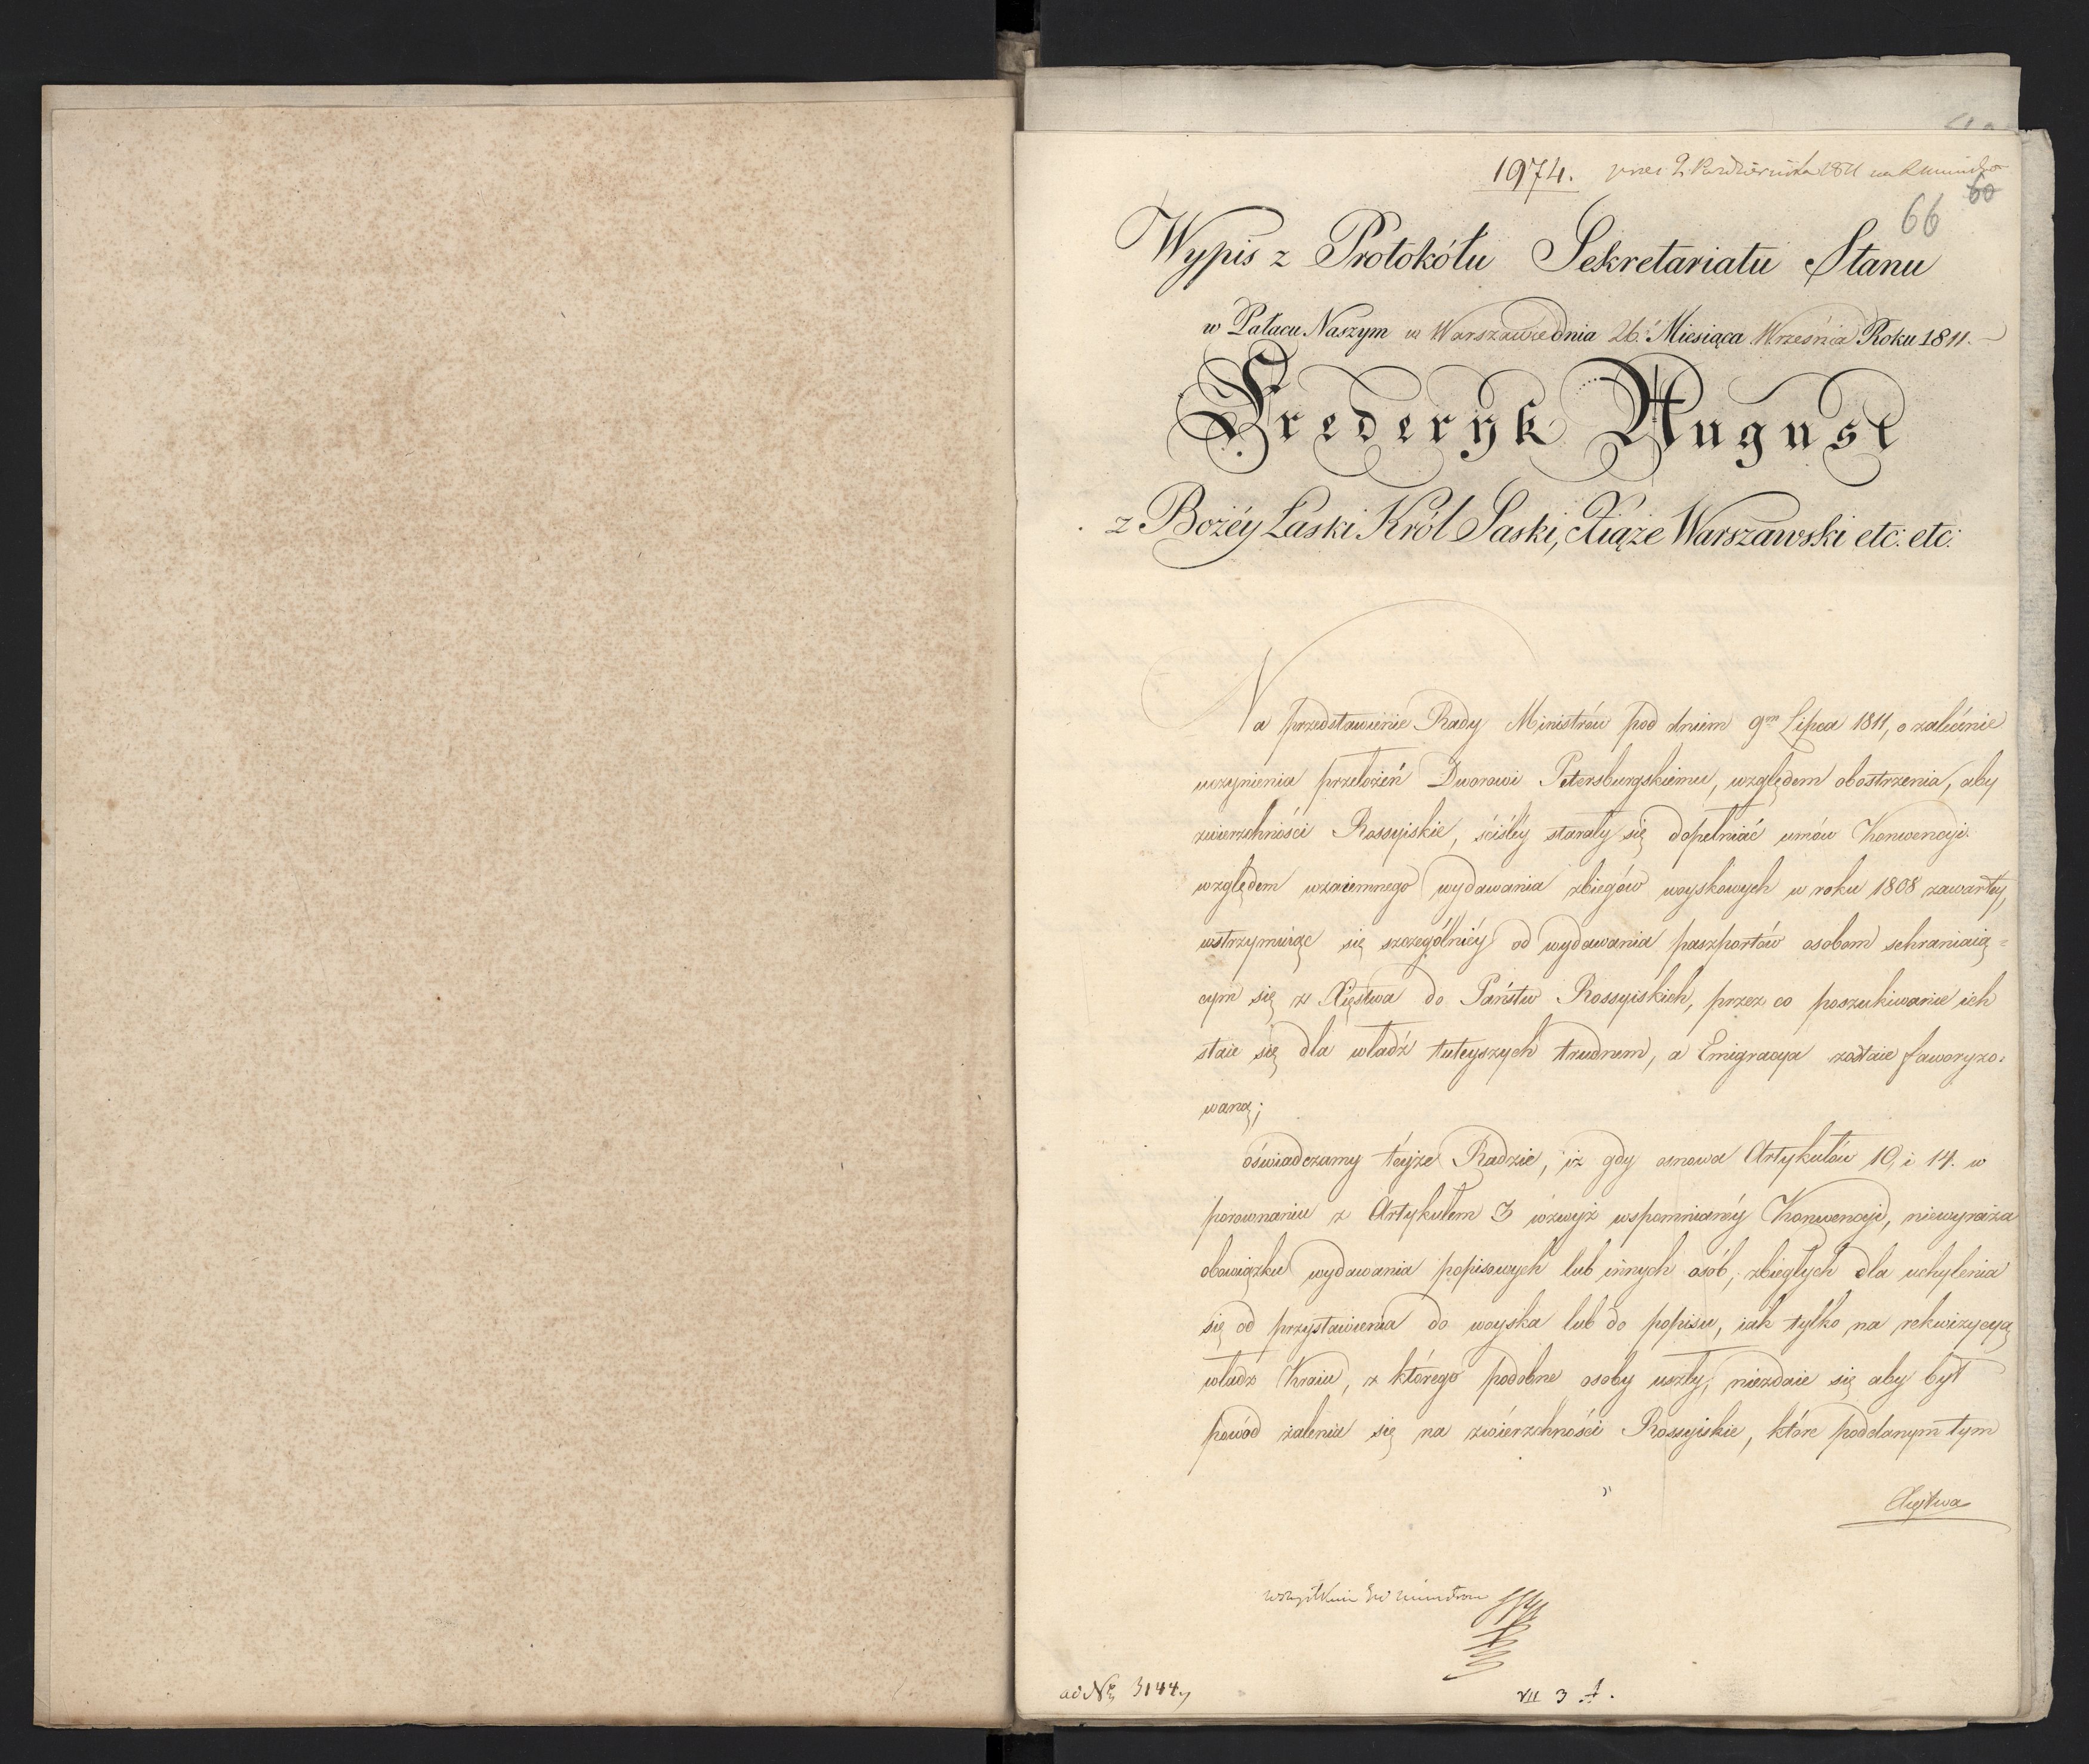 1974. 2 Października 1811
60
66
Wypis z Protokółu Sekretariatu Stanu
w Pałacu Naszym w Warszawie dnia 26. Miesiąca Września Roku 1811.
Frederyk August
z Bożéy Łaski Król Saski, Xiąże Warszawski etc: etc:
Na przedstawienie Rady Ministrów pod dniem 9m Lipca 1811, o zalécenie
uczynienia przełożeń Dworowi Petersburgskiemu, względem obostrzenia, aby
zwierzchności Rossyiskie, ściśléy starały się dopełniać umów Konwencyi
względem wzaiemnego wydawania zbiegów woyskowych w roku 1808 zawartéy,
wstrzymuiąc się szczególniéy od wydawania paszportów osobom schraniaią=
cym się z Xięstwa do Państw Rossyiskich, przez co poszukiwanie ich
staie się dla władz tuteyszych trudnem, a Emigracya zostaie faworyzo=
waną;
oświadczamy téyże Radzie, iż gdy osnowa Artykułów 10, i 14. w
porownaniu z Artykułem 3 wzwyż wspomnianéy Konwencyi, niewyraża
obowiązku wydawania popisowych lub innych osób, zbiegłych dla uchylenia
się od przystawienia do woyska lub do popisu, iak tylko na rekwizycyą
władz Kraiu, z którego podobne osoby uszły; niezdaie się aby był
powód żalenia się na zwierzchności Rossyiskie, które poddanym tym
Xięstwa
wszystkim ministrom
ad Nr 3144
VII 3 A.